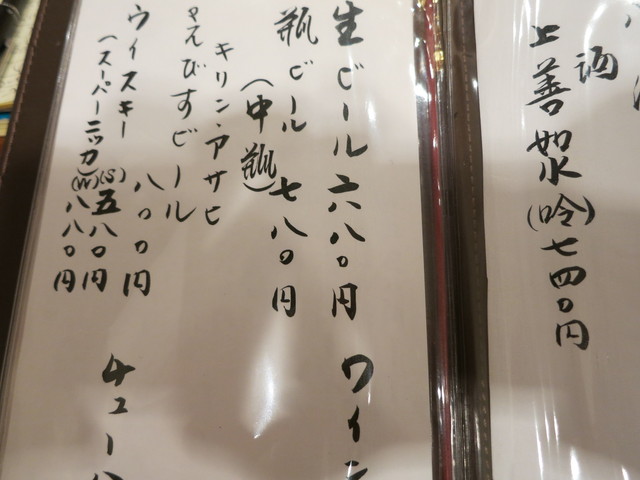 酒
上善如水(吟)七四〇円
生ビール 六八〇円
瓶ビール
(中瓶) 七八〇円
キリン・アサヒ
ヱびすビール
八〇〇円
ウイスキー(S) 五八〇円
(スーパーニッカ)(W) 八八〇円
ワイン
チューハ